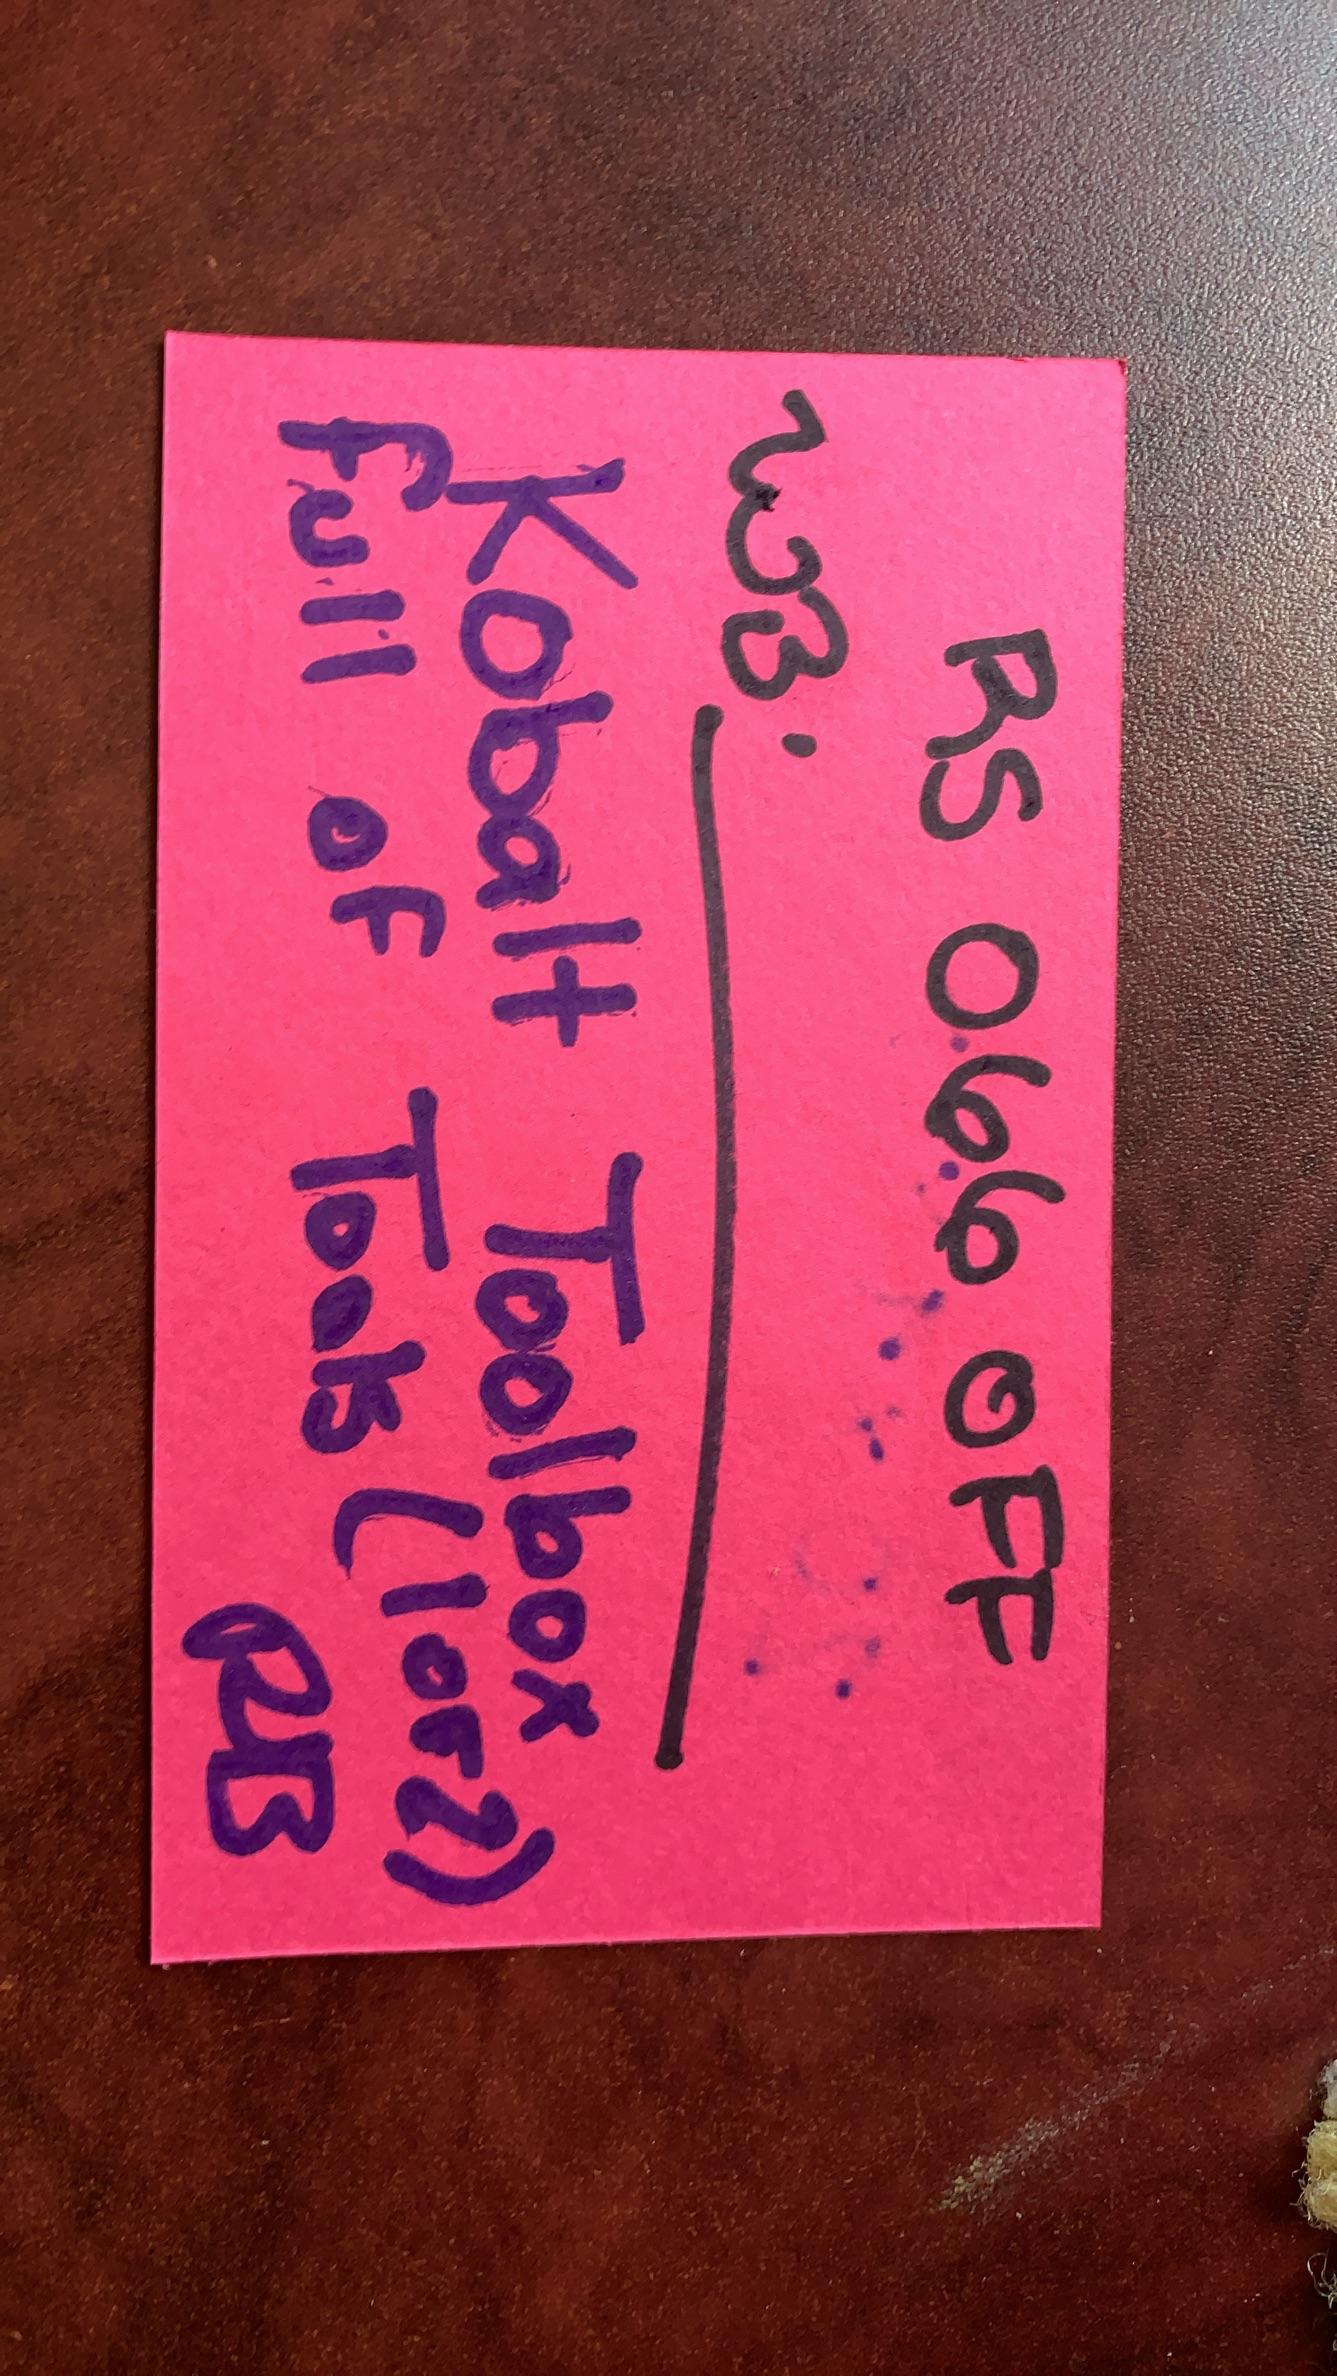 RS 066 OFF
WB:
Kobalt Toolbox
Full of Tools (1 of 2)